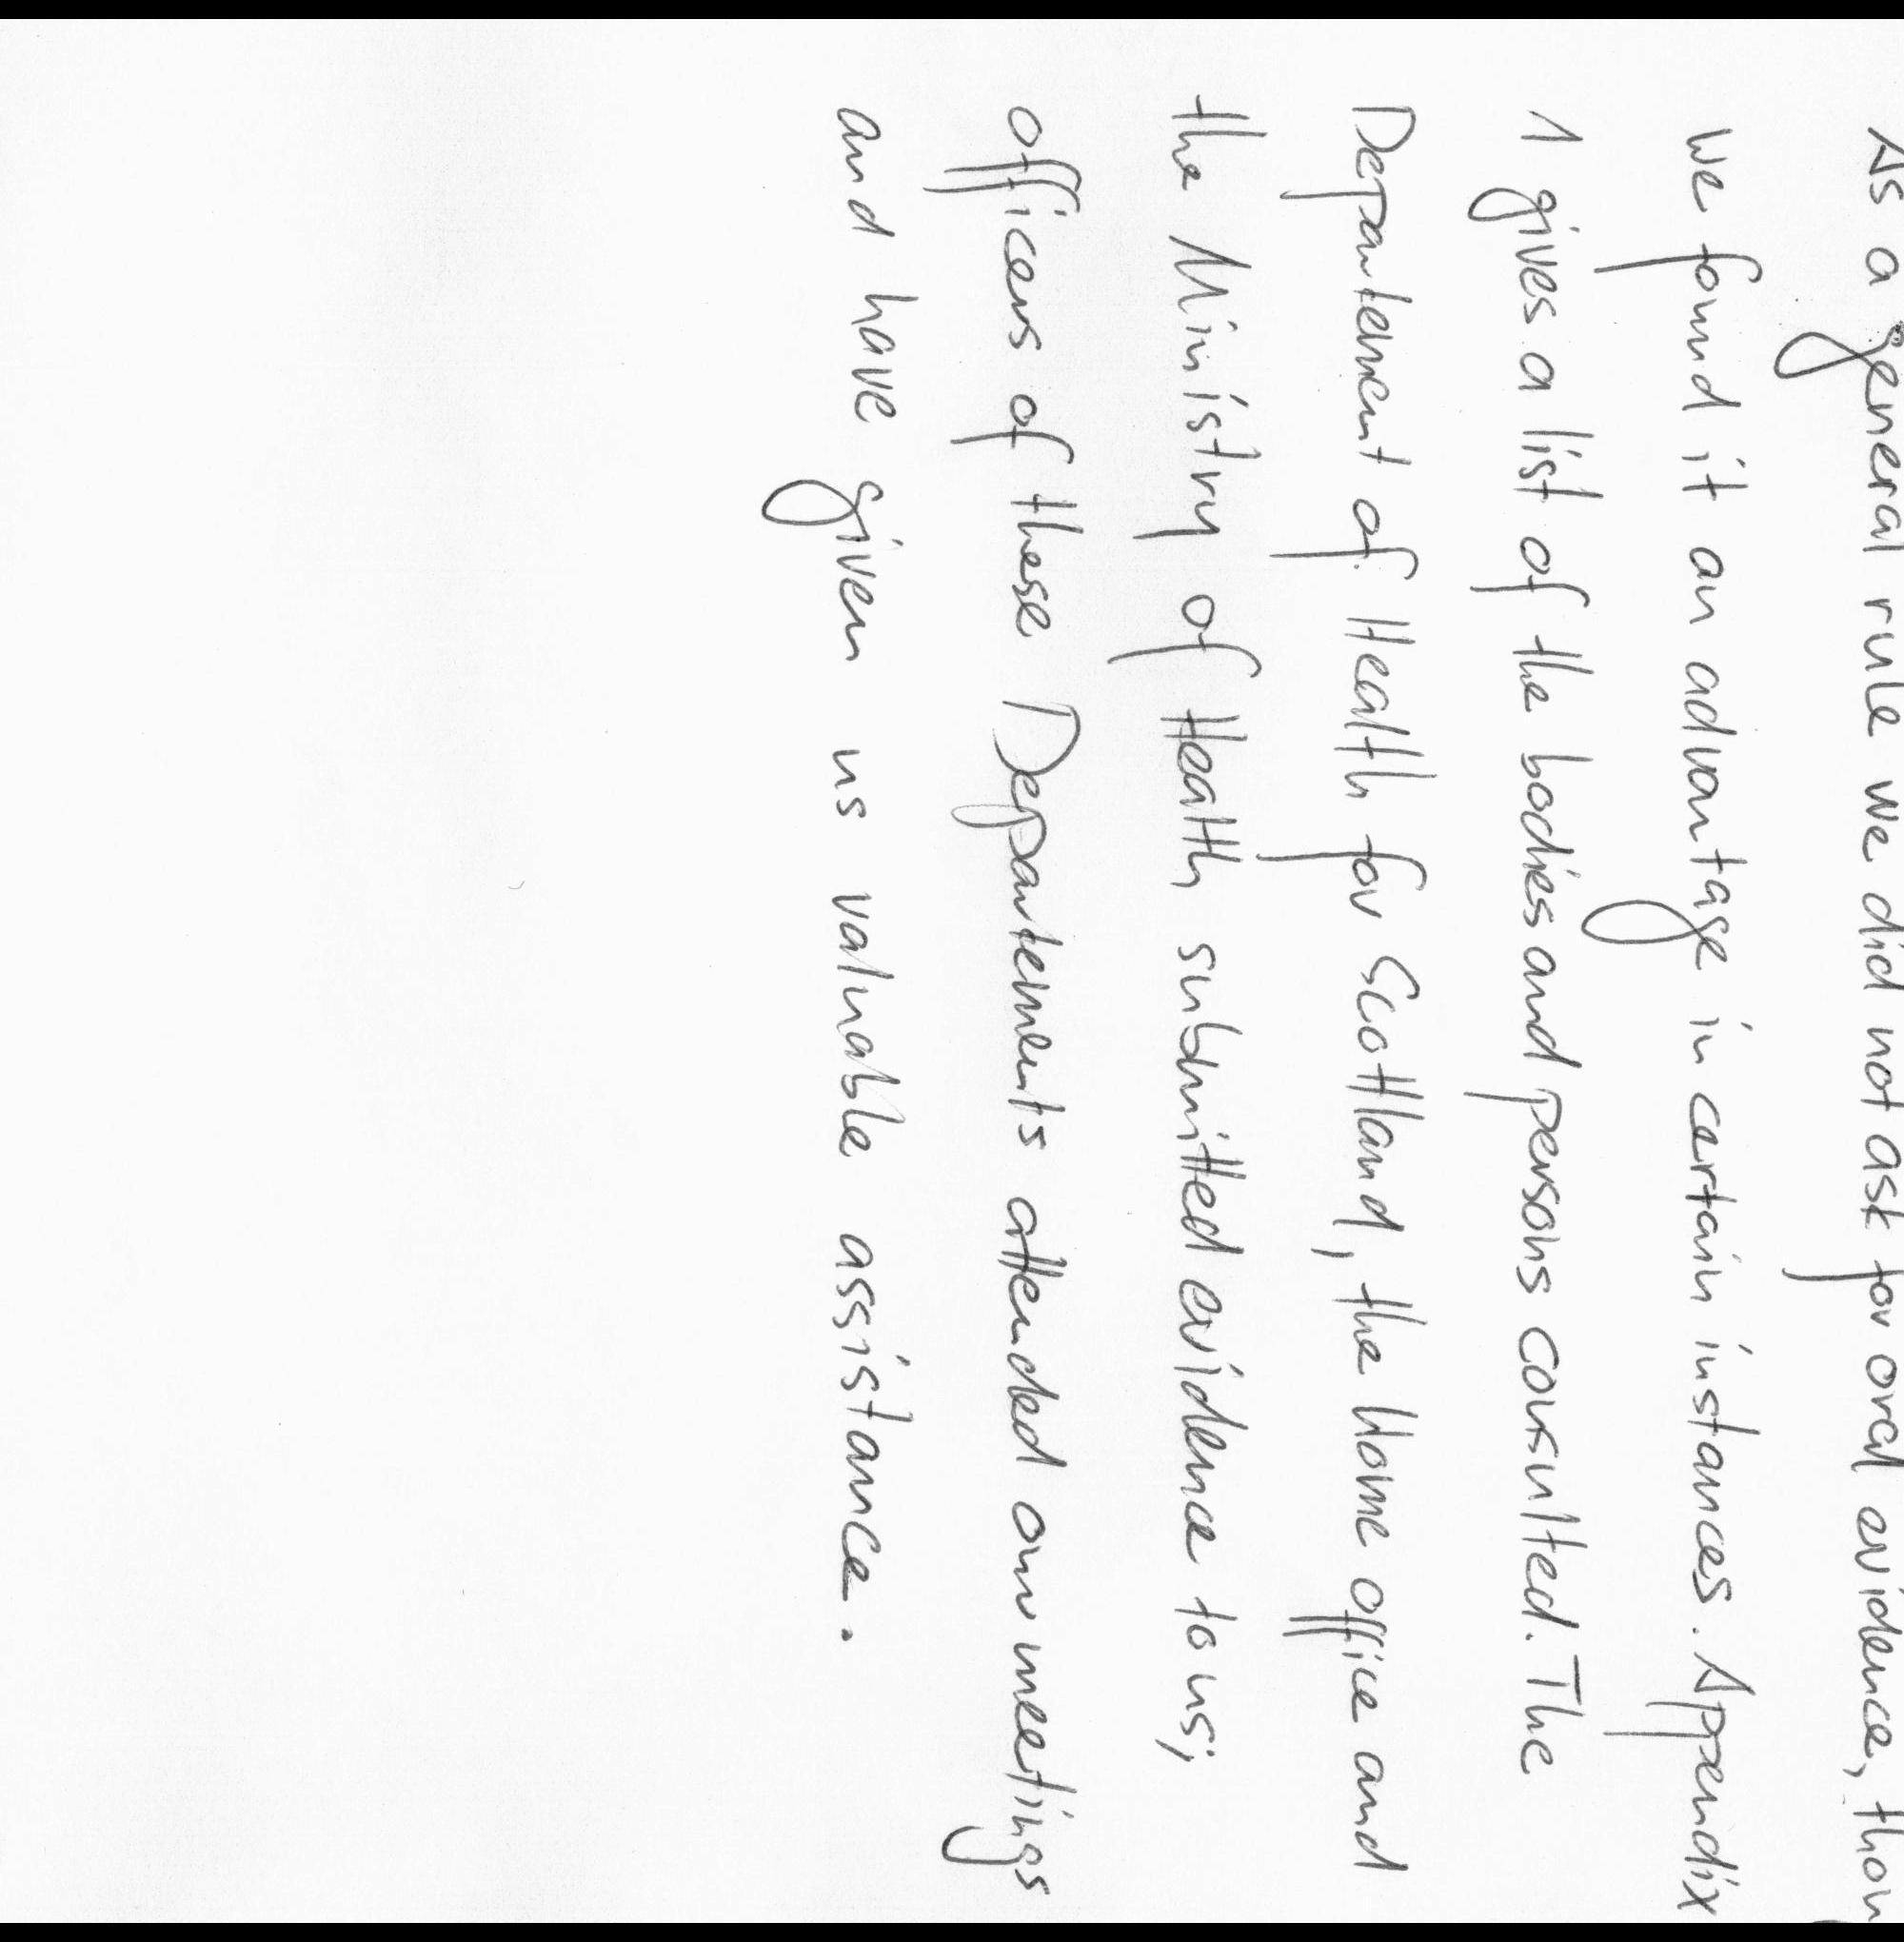 As a general rule we did not ask for oral evidence, thou
we found it an advantage in certain instances. Appendix
1 gives a list of the bodies and persons consulted. The
Departement of Health for Scottland, the Home office and
the Ministry of Health submitted evidence to us;
officers of these Departements attended our meetings
and have given us valuable assistance.